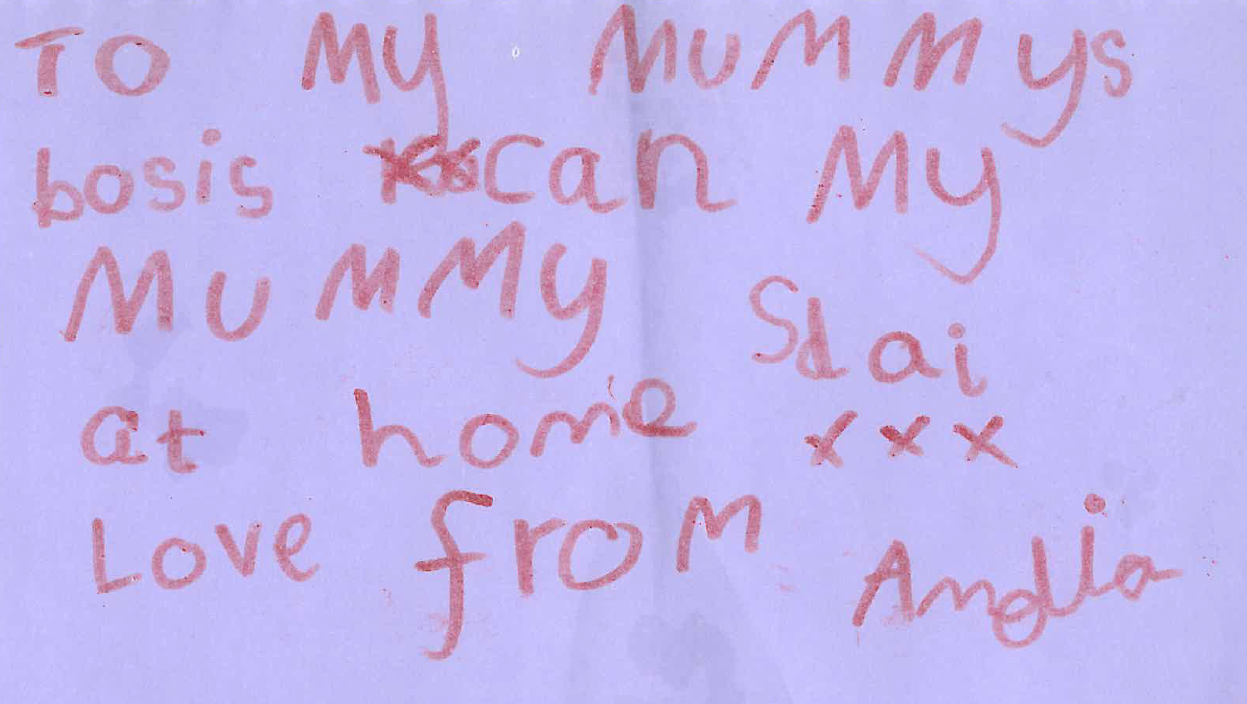 TO My MuMMys
bosis can My
MuMMy Sdai
at home xxx
Love froM